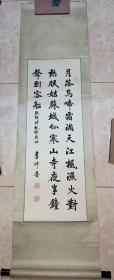 月落烏啼霜滿天江楓漁火對
愁眠姑蘇城外寒山寺夜半鐘
聲到客船